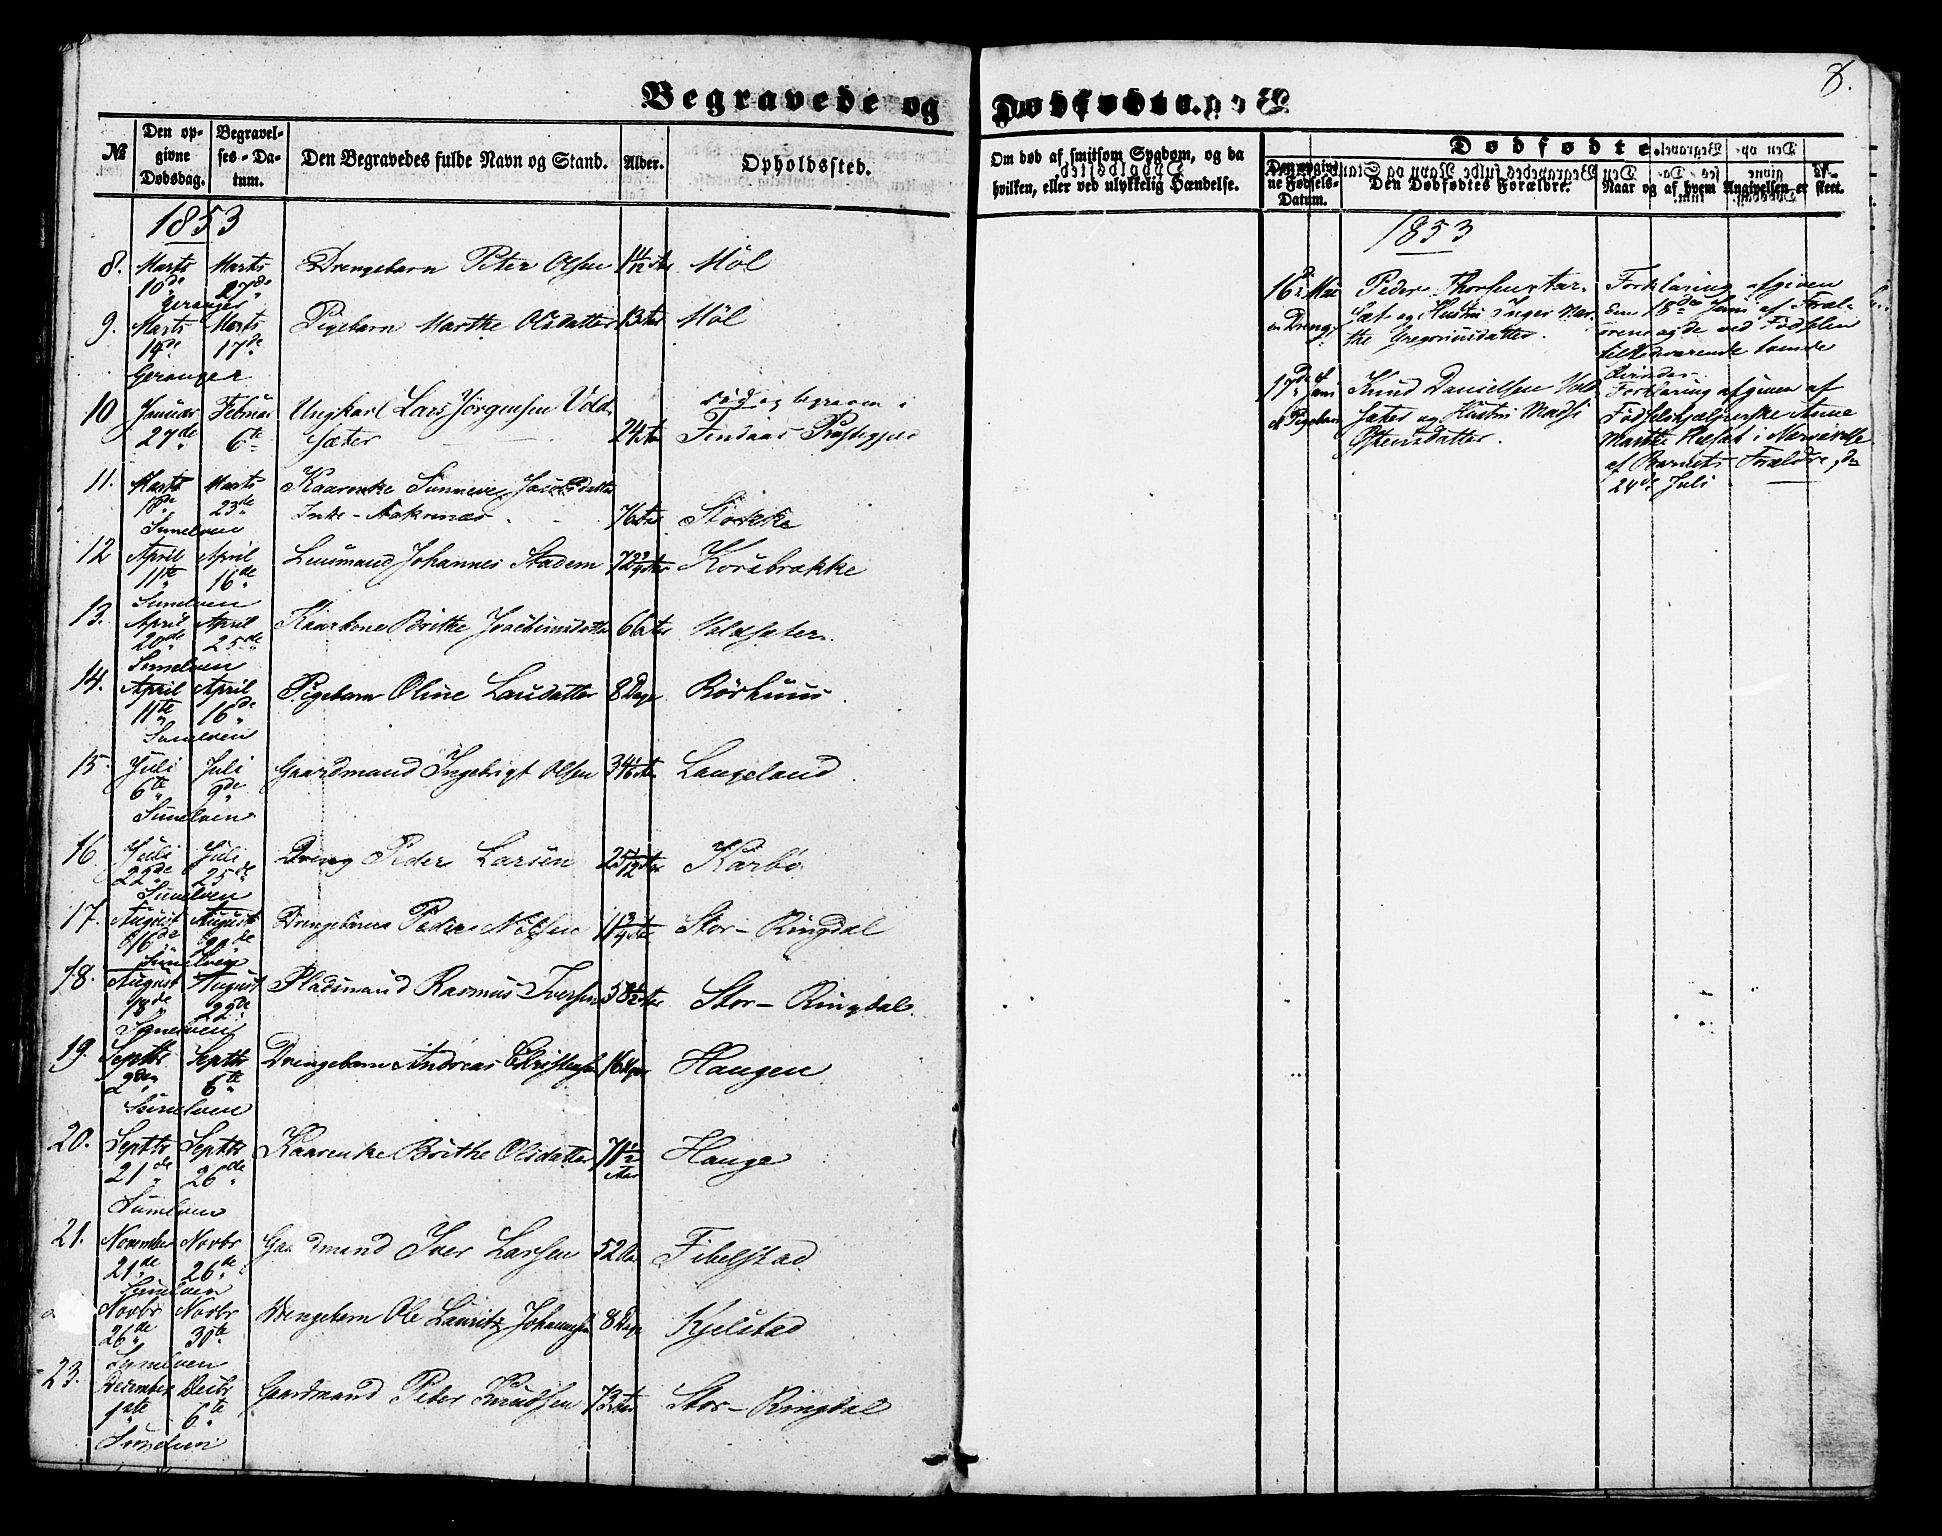 8.
Begravede og Dødfødte.
№
Den opgivne Dødsdag.
Begravelses-Datum.
Den Begravedes fulde Navn og Stand.
Alder.
Opholdssted.
Om død af smitsom Sygdom, og da hvilken, eller ved ulykkelig Hændelse.
Dødfødte.
Den opgivne Fødsels-Datum.
Den Dødfødtes Forældre.
Naar og af hvem Angivelsen er skeet.
1853
8. Marts 10de Marts 27de Drengebarn Peter Olsen Møl
Geranger
9. Marts 14de Marts 17de Pigebarn Marthe Olsdatter Møl
Geranger
10 Januar 27de Februar 6te Ungkarl Lars Jörgensen Vold- død og begraven i
sæter 24 Aar Præstegjeld
11. Marts 18de Marts 23de Kaarenke Sunneve Jacobsdatter
76 Aar Stokke
Sunelven
12 April 11te April 16de Lensmand Johannes Stadem Korsbrække
Sunelven
13. April 20de April 25de Brithe Joachimsdatter 66 Aar Voldsæter
Sunelven
14. April 11te April 16de Pigebarn Oline Larsdatter 8 Dage Rörhuus
Sunelven
15. Juli 6te Juli 9de Gaardmand Ingebrigt Olsen Langeland
Sunelven
16 Juli 22de Juli 25de Dreng Peder Larsen Karbø
Sunelven
17. August 16de August Drengebarn Peder Nilsen Stor-Ringdal
Sunelven
18. August 18de August 22de Pladsmand Rasmus Iversen 58½ Aar Stor-Ringdal.
Sunelven
19. Septbr 2den Septbr 6te Drengebarn Andreas Christensen Haugen
Sunelven
20. Septbr 21de Septbr 26de Kaarenke Brithe Olsdatter 71½ Aar Hauge
Sunelven
21. November 21de Novbr 26de Gaardmand Iver Larsen 52 Aar Fibelstad
Sunelven
Novbr 26de Novbr 30te Drengebarn Ole Lauritz Johannesen 8 Dage Kjelstad
Sunelven
23. December 1ste Decbr 6te Gaardmand Peter Knudsen 73 Aar Stor-Ringdal
Sunelven
1853
16de Mai
en Dreng
Peder Thorsen Aar-
sæt og Hustru Inger Mar-
the Gregoriusdatter.
Forklaring afgiven
den 18de Juni af Foræl-
drene og de ved Fødselen
tilstedeværende
Qvinder
17de Juni
et Pigebarn
Knud Danielsen Vold-
sæter og Hustru Madsi
Ostensdatter.
Forklaring afgiven af
Fødselshjælperske Anne
Marthe i Nærværelse
af Barnets Forældre, den
24de Juli